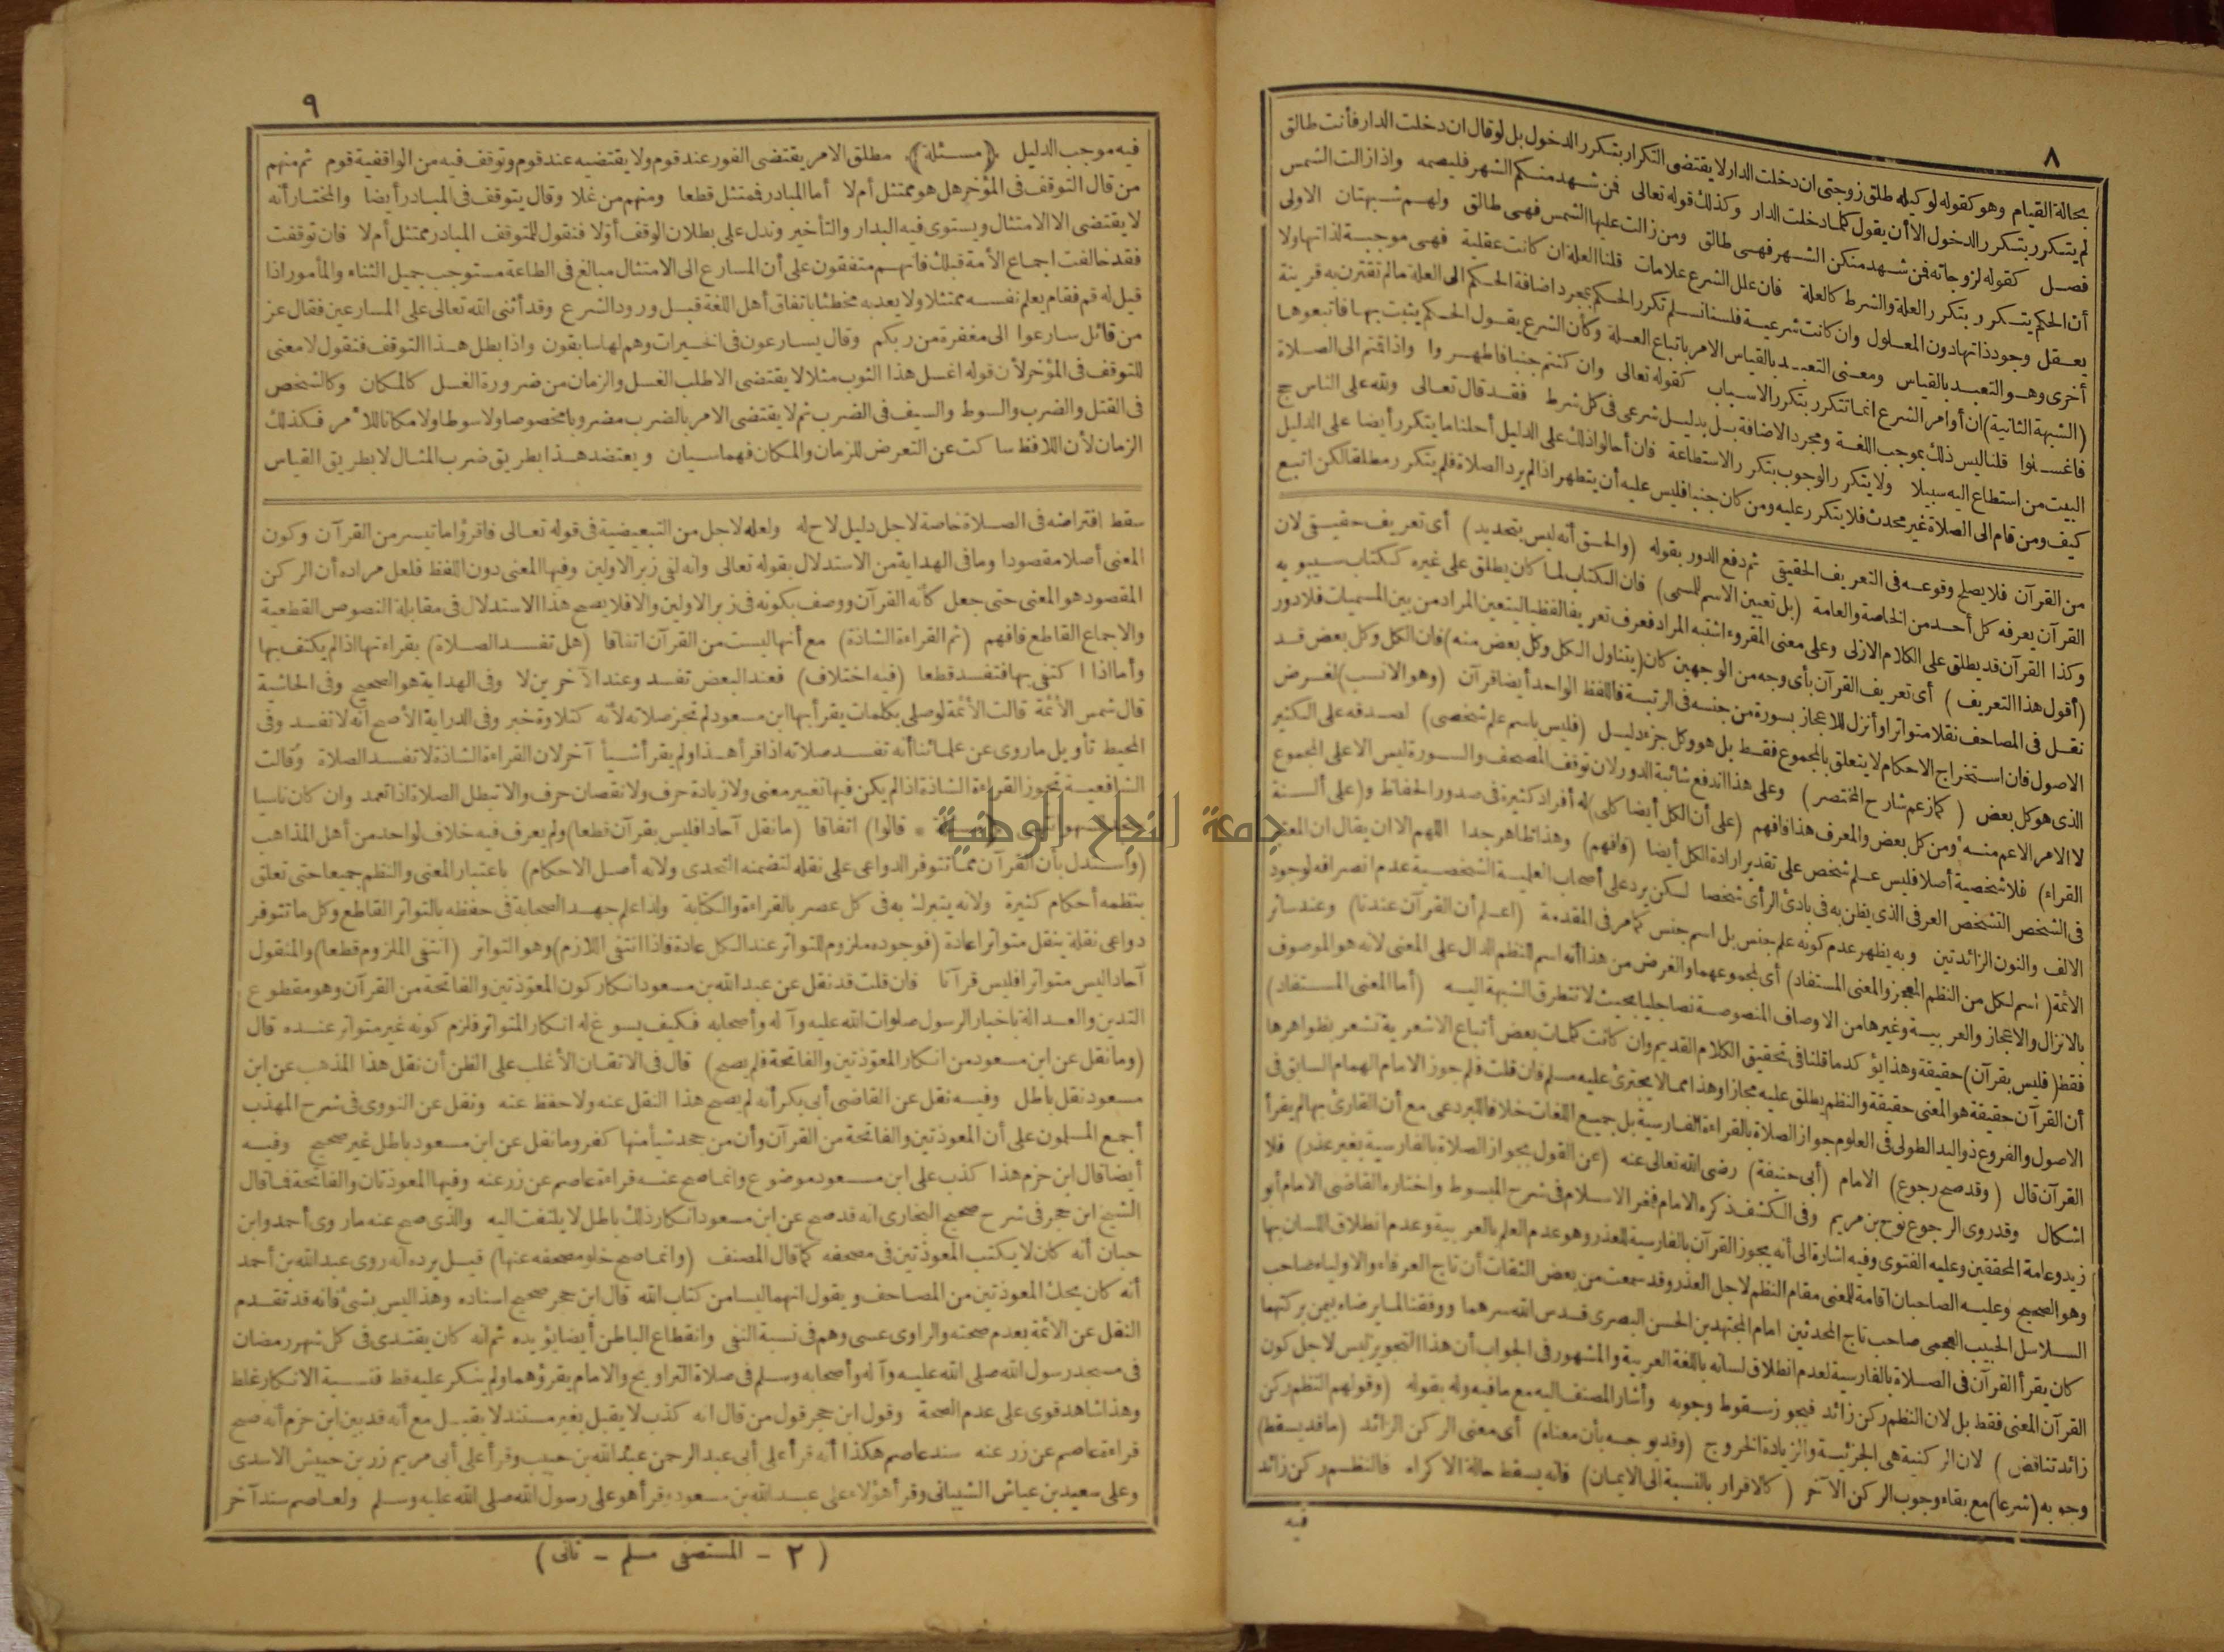 ٨
بحالة القيام وهو كقوله لوكيله طلق زوجتى ان دخلت الدار لا يقتضى التكرار بتكرر الدخول بل لو قال ان دخلت الدار فأنت طالق
لم يتكرر بتكرر الدخول الا أن يقول كلما دخلت الدار وكذلك قوله تعالى فمن شهد منكم الشهر فليصمه واذا زالت الشمس
فصل كقوله لزوجاته فمن شهد منكن الشهر فهى طالق ومن زالت عليها الشمس فهى طالق ولهم شبهتان الاولى
أن الحكم يتكرر بتكرر العلة والشرط كالعلة فان علل الشرع علامات قلنا العلة ان كانت عقلية فهى موجبة لذاتها ولا
يعقل وجود ذاتها دون المعلول وان كانت شرعية فلسنا نسلم تكرر الحكم بمجرد اضافة الحكم الى العلة ما لم تقترن به قرينة
أخرى وهو التعبد بالقياس ومعنى التعبد بالقياس الامر باتباع العلة وكأن الشرع يقول الحكم يثبت بها فاتبعوها
(الشبهة الثانية) ان أوامر الشرع انما تتكرر بتكرر الاسباب كقوله تعالى وان كنتم جنبا فاطهروا واذا قمتم الى الصلاة
فاغسلوا قلنا ليس ذلك بموجب اللغة ومجرد الاضافة بل بدليل شرعى فى كل شرط فقد قال تعالى ولله على الناس حج
البيت من استطاع اليه سبيلا ولا يتكرر الوجوب بتكرر الاستطاعة فان أحالوا ذلك على الدليل أحلنا ما يتكرر أيضا على الدليل
كيف ومن قام الى الصلاة غير محدث فلا يتكرر عليه ومن كان جنبا فليس عليه أن يتطهر اذا لم يرد الصلاة فلم يتكرر مطلقا لكن اتبع
من القرآن فلا يصلح وقوعه فى التعريف الحقيقى ثم دفع الدور بقوله (والحق أنه ليس بتحديد) أى تعريف حقيقى لان
القرآن يعرفه كل أحد من الخاصة والعامة (بل تعيين الاسم للمسمى) فان الكتاب لما كان يطلق على غيره ككتاب سيبويه
وكذا القرآن قد يطلق على الكلام الازلى وعلى معنى المقروء اشتبه المراد فعرف تعريفا لفظيا ليتعين المراد من بين المسميات فلا دور
(أقول هذا التعريف) أى تعريف القرآن بأى وجه من الوجهين كان (يتناول الكل وكل بعض منه) فان الكل وكل بعض قد
نقل فى المصاحف نقلا متواترا وأنزل للاعجاز بسورة من جنسه فى الرتبة فاللفظ الواحد أيضا قرآن (وهو الانسب) لغرض
الاصول فان استخراج الاحكام لا يتعلق بالمجموع فقط بل هو وكل جزء دليل (فليس باسم علم شخصى) لصدقه على الكثير
الذى هو كل بعض (كما زعم شارح المختصر) وعلى هذا اندفع شائبة الدور لان توقف المصحف والسورة ليس الا على المجموع
لا الامر الاعم منه ومن كل بعض والمعرف هذا فافهم (على أن الكل أيضا كلى) له أفراد كثيرة فى صدور الحفاظ و(على ألسنة
القراء) فلا شخصية أصلا فليس علم شخص على تقدير ارادة الكل أيضا (فافهم) وهذا ظاهر جدا اللهم الا ان يقال ان المعتبر
فى الشخص التشخص العرفى الذى يظن به فى بادئ الرأى شخصا لكن يرد على أصحاب العلمية الشخصية عدم انصرافه لوجود
الالف والنون الزائدتين وبه يظهر عدم كونه علم جنس بل اسم جنس كما مر فى المقدمة (اعلم أن القرآن عندنا) وعند سائر
الأئمة (اسم لكل من النظم المعجز والمعنى المستفاد) أى لمجموعهما والغرض من هذا أنه اسم النظم الدال على المعنى لانه هو الموصوف
بالانزال والاعجاز والعربية وغيرها من الاوصاف المنصوصة نصا جليا بحيث لا تتطرق الشبهة اليه (أما المعنى المستفاد)
فقط (فليس بقرآن) حقيقة وهذا يؤكد ما قلنا فى تحقيق الكلام القديم وان كانت كلمات بعض أتباع الاشعرية تشعر بظواهرها
أن القرآن حقيقة هو المعنى حقيقة والنظم يطلق عليه مجازا وهذا مما لا يجترئ عليه مسلم فان قلت فلم جوز الامام الهمام السابق فى
الاصول والفروع ذو اليد الطولى فى العلوم جواز الصلاة بالقراءة الفارسية بل جميع اللغات خلافا للبردعى مع أن القارئ بها لم يقرأ
القرآن قال (وقد صح رجوع) الامام (أبى حنيفة) رضى الله تعالى عنه (عن القول بجواز الصلاة بالفارسية بغير عذر) فلا
اشكال وقد روى الرجوع نوح بن مريم وفى الكشف ذكره الامام فخر الاسلام فى شرح المبسوط واختاره القاضى الامام أبو
زيد وعامة المحققين وعليه الفتوى وفيه اشارة الى أنه يجوز القرآن بالفارسية للعذر وهو عدم العلم بالعربية وعدم انطلاق اللسان بها
وهو الصحيح وعليه الصاحبان اقامة للمعنى مقام النظم لاجل العذر وقد سمعت من بعض الثقات أن تاج العرفاء والاولياء صاحب
السلاسل الحبيب العجمى صاحب تاج المحدثين امام المجتهدين الحسن البصرى قدس الله سرهما ووفقنا لما يرضاه بيمن بركتهما
كان يقرأ القرآن فى الصلاة بالفارسية لعدم انطلاق لسانه باللغة العربية والمشهور فى الجواب أن هذا التجويز ليس لاجل كون
القرآن المعنى فقط بل لان النظم ركن زائد فيجوز سقوط وجوبه وأشار المصنف اليه مع ما فيه وله بقوله (وقولهم النظم ركن
زائد تناقض) لان الركنية هى الجزئية والزيادة الخروج (وقد يوجه بأن معناه) أى معنى الركن الزائد (ما قد يسقط)
وجوبه (شرعا) مع بقاء وجوب الركن الآخر (كالاقرار بالنسبة الى الايمان) فانه يسقط حالة الاكراه فالنظم ركن زائد
فيه
٩
فيه موجب الدليل ﴿مسئلة﴾ مطلق الامر يقتضى الفور عند قوم ولا يقتضيه عند قوم وتوقف فيه من الواقفية قوم ثم منهم
من قال التوقف فى المؤخر هل هو ممتثل أم لا أما المبادر فممتثل قطعا ومنهم من غلا وقال يتوقف فى المبادر أيضا والمختار أنه
لا يقتضى الا الامتثال ويستوى فيه البدار والتأخير وندل على بطلان الوقف أولا فنقول للمتوقف المبادر ممتثل أم لا فان توقفت
فقد خالفت اجماع الأمة قبلك فانهم متفقون على أن المسارع الى الامتثال مبالغ فى الطاعة مستوجب جميل الثناء والمأمور اذا
قيل له قم فقام يعلم نفسه ممتثلا ولا يعد به مخطئا باتفاق أهل اللغة قبل ورود الشرع وقد أثنى الله تعالى على المسارعين فقال عز
من قائل سارعوا الى مغفرة من ربكم وقال يسارعون فى الخيرات وهم لها سابقون واذا بطل هذا التوقف فنقول لا معنى
للتوقف فى المؤخر لأن قوله اغسل هذا الثوب مثلا لا يقتضى الا طلب الغسل والزمان من ضرورة الغسل كالمكان وكالشخص
فى القتل والضرب والسوط والسيف فى الضرب ثم لا يقتضى الامر بالضرب مضروبا مخصوصا ولا سوطا ولا مكانا للأمر فكذلك
الزمان لأن اللافظ ساكت عن التعرض للزمان والمكان فهما سيان ويعتضد هذا بطريق ضرب المثال لا بطريق القياس
سقط افتراضه فى الصلاة خاصة لاجل دليل لاح له ولعله لاجل من التبعيضية فى قوله تعالى فاقرؤا ما تيسر من القرآن وكون
المعنى أصلا مقصودا وما فى الهداية من الاستدلال بقوله تعالى وانه لفى زبر الاولين وفيها المعنى دون اللفظ فلعل مراده أن الركن
المقصود هو المعنى حتى جعل كأنه القرآن ووصف بكونه فى زبر الاولين والا فلا يصح هذا الاستدلال فى مقابلة النصوص القطعية
والاجماع القاطع فافهم (ثم القراءة الشاذة) مع أنها ليست من القرآن اتفاقا (هل تفسد الصلاة) بقراءتها اذا لم يكتف بها
وأما اذا اكتفى بها فتفسد قطعا (فيه اختلاف) فعند البعض تفسد وعند الآخرين لا وفى الهداية هو الصحيح وفى الحاشية
قال شمس الأئمة قالت الأئمة لو صلى بكلمات يقرأ بها ابن مسعود لم تجز صلاته لأنه كتلاوة خبر وفى الدراية الأصح أنه لا تفسد وفى
المحيط تأويل ما روى عن علمائنا أنه تفسد صلاته اذا قرأ هذا ولم يقرأ شيأ آخر لان القراءة الشاذة لا تفسد الصلاة وقالت
الشافعية تجوز القراءة الشاذة اذا لم يكن فيها تغيير معنى ولا زيادة حرف ولا نقصان حرف والا تبطل الصلاة اذا تعمد وان كان ناسيا
قالوا) اتفاقا (ما نقل آحادا فليس بقرآن قطعا) ولم يعرف فيه خلاف لواحد من أهل المذاهب
جامعة النجاح الوطنية
(واستدل بأن القرآن مما تتوفر الدواعى على نقله لتضمنه التحدى ولانه أصل الاحكام) باعتبار المعنى والنظم جميعا حتى تعلق
بنظمه أحكام كثيرة ولانه يتبرك به فى كل عصر بالقراءة والكتابة ولذا علم جهد الصحابة فى حفظه بالتواتر القاطع وكل ما تتوفر
دواعى نقله ينقل متواترا عادة (فوجوده ملزوم للتواتر عند الكل عادة فاذا انتفى اللازم) وهو التواتر (انتفى الملزوم قطعا) والمنقول
آحادا ليس متواترا فليس قرآنا فان قلت قد نقل عن عبد الله بن مسعود انكار كون المعوذتين والفاتحة من القرآن وهو مقطوع
التدين والعدالة باخبار الرسول صلوات الله عليه وآله وأصحابه فكيف يسوغ له انكار المتواتر فلزم كونه غير متواتر عنده قال
(وما نقل عن ابن مسعود من انكار المعوذتين والفاتحة فلم يصح) قال فى الاتقان الأغلب على الظن أن نقل هذا المذهب عن ابن
مسعود نقل باطل وفيه نقل عن القاضى أبى بكر أنه لم يصح هذا النقل عنه ولا حفظ عنه ونقل عن النووى فى شرح المهذب
أجمع المسلمون على أن المعوذتين والفاتحة من القرآن وأن من جحد شيأ منها كفر وما نقل عن ابن مسعود باطل غير صحيح وفيه
أيضا قال ابن حزم هذا كذب على ابن مسعود موضوع وانما صح عنه قراءة عاصم عن زر عنه وفيها المعوذتان والفاتحة فما قال
الشيخ ابن حجر فى شرح صحيح البخارى انه قد صح عن ابن مسعود انكار ذلك باطل لا يلتفت اليه والذى صح عنه ما روى أحمد وابن
حبان أنه كان لا يكتب المعوذتين فى مصحفه كما قال المصنف (وانما صح خلو مصحفه عنها) قيل يرده أنه روى عبد الله بن أحمد
أنه كان يحك المعوذتين من المصاحف ويقول انهما ليسا من كتاب الله قال ابن حجر صحيح اسناده وهذا ليس بشئ فانه قد تقدم
النقل عن الائمة بعدم صحته والراوى عسى وهم فى نسبة النفى وانقطاع الباطن أيضا يؤيده ثم انه كان يقتدى فى كل شهر رمضان
فى مسجد رسول الله صلى الله عليه وآله وأصحابه وسلم فى صلاة التراويح والامام يقرؤهما ولم ينكر عليه قط فنسبة الانكار غلط
وهذا شاهد قوى على عدم الصحة وقول ابن حجر قول من قال انه كذب لا يقبل بغير مستند لا يقبل مع أنه قد بين ابن حزم أنه صح
قراءة عاصم عن زر عنه سند عاصم هكذا أنه قرأ على أبى عبد الرحمن عبد الله بن حبيب وقرأ على أبى مريم زر بن حبيش الاسدى
وعلى سعيد بن عياش الشيبانى وقرأ هؤلاء على عبد الله بن مسعود وقرأ هو على رسول الله صلى الله عليه وسلم ولعاصم سند آخر
(٢ - المستصفى مسلم - ثانى)